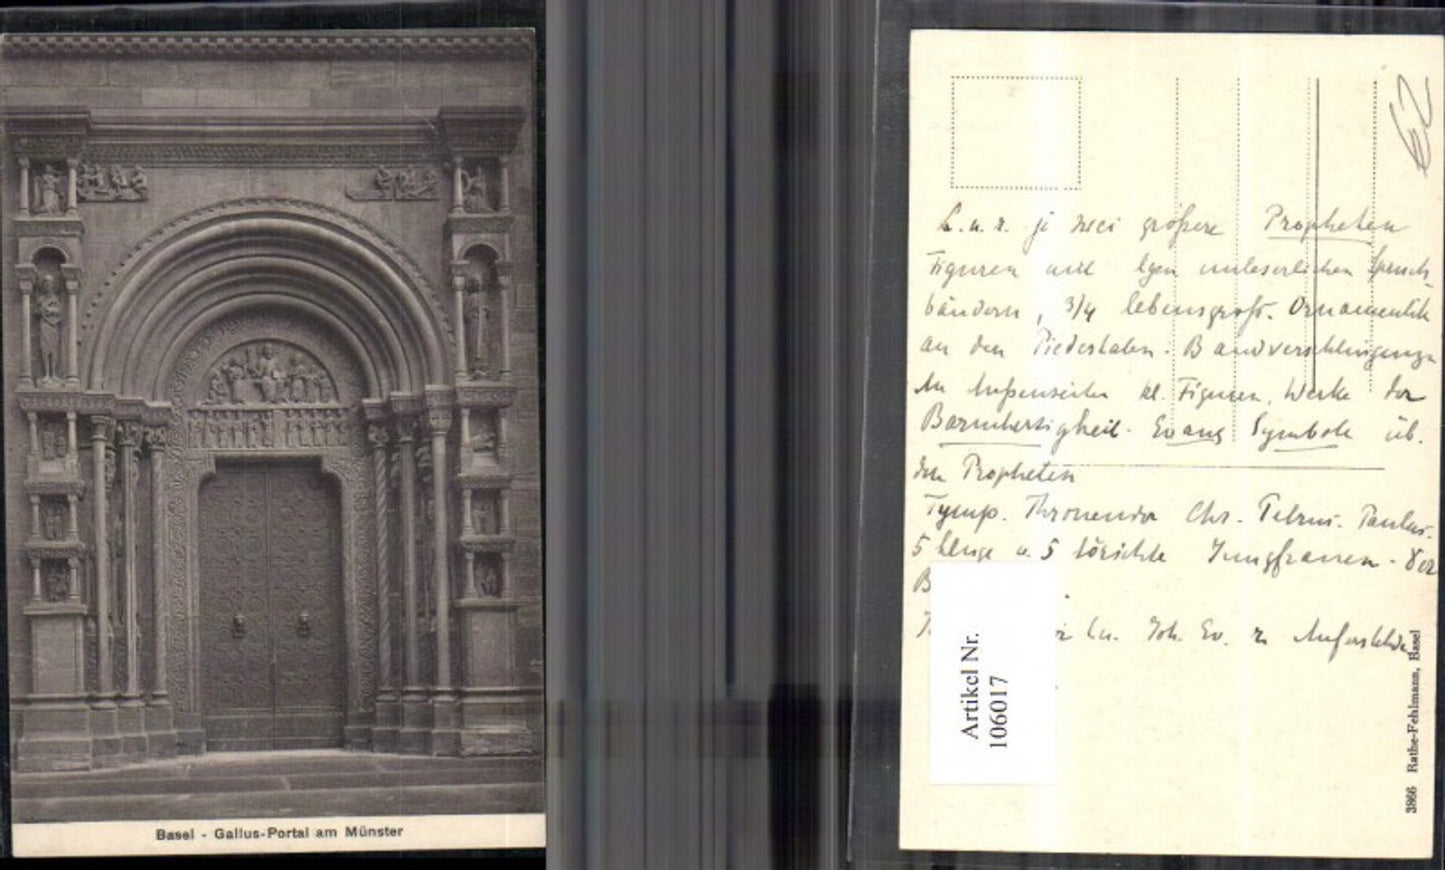 Basel - Gallus-Portal am Münster
L. u. r. je zwei größere Propheten
Figuren mit unleserlichen Spruch
bändern, 3/4 lebensgroß. Ornamentik
an den Piedestalen. Bandverschlingungen
An Außenseiten kl. Figuren, Werke der
Barmherzigkeit. Evang Symbole üb.
den Propheten
Tymp. Thronender Chr. Petrus. Paulus.
5 kluge u. 5 törichte Jungfrauen. Der
B
Joh. Ev.
Artikel Nr.
106017
3866 Rathe-Fehlmann, Basel